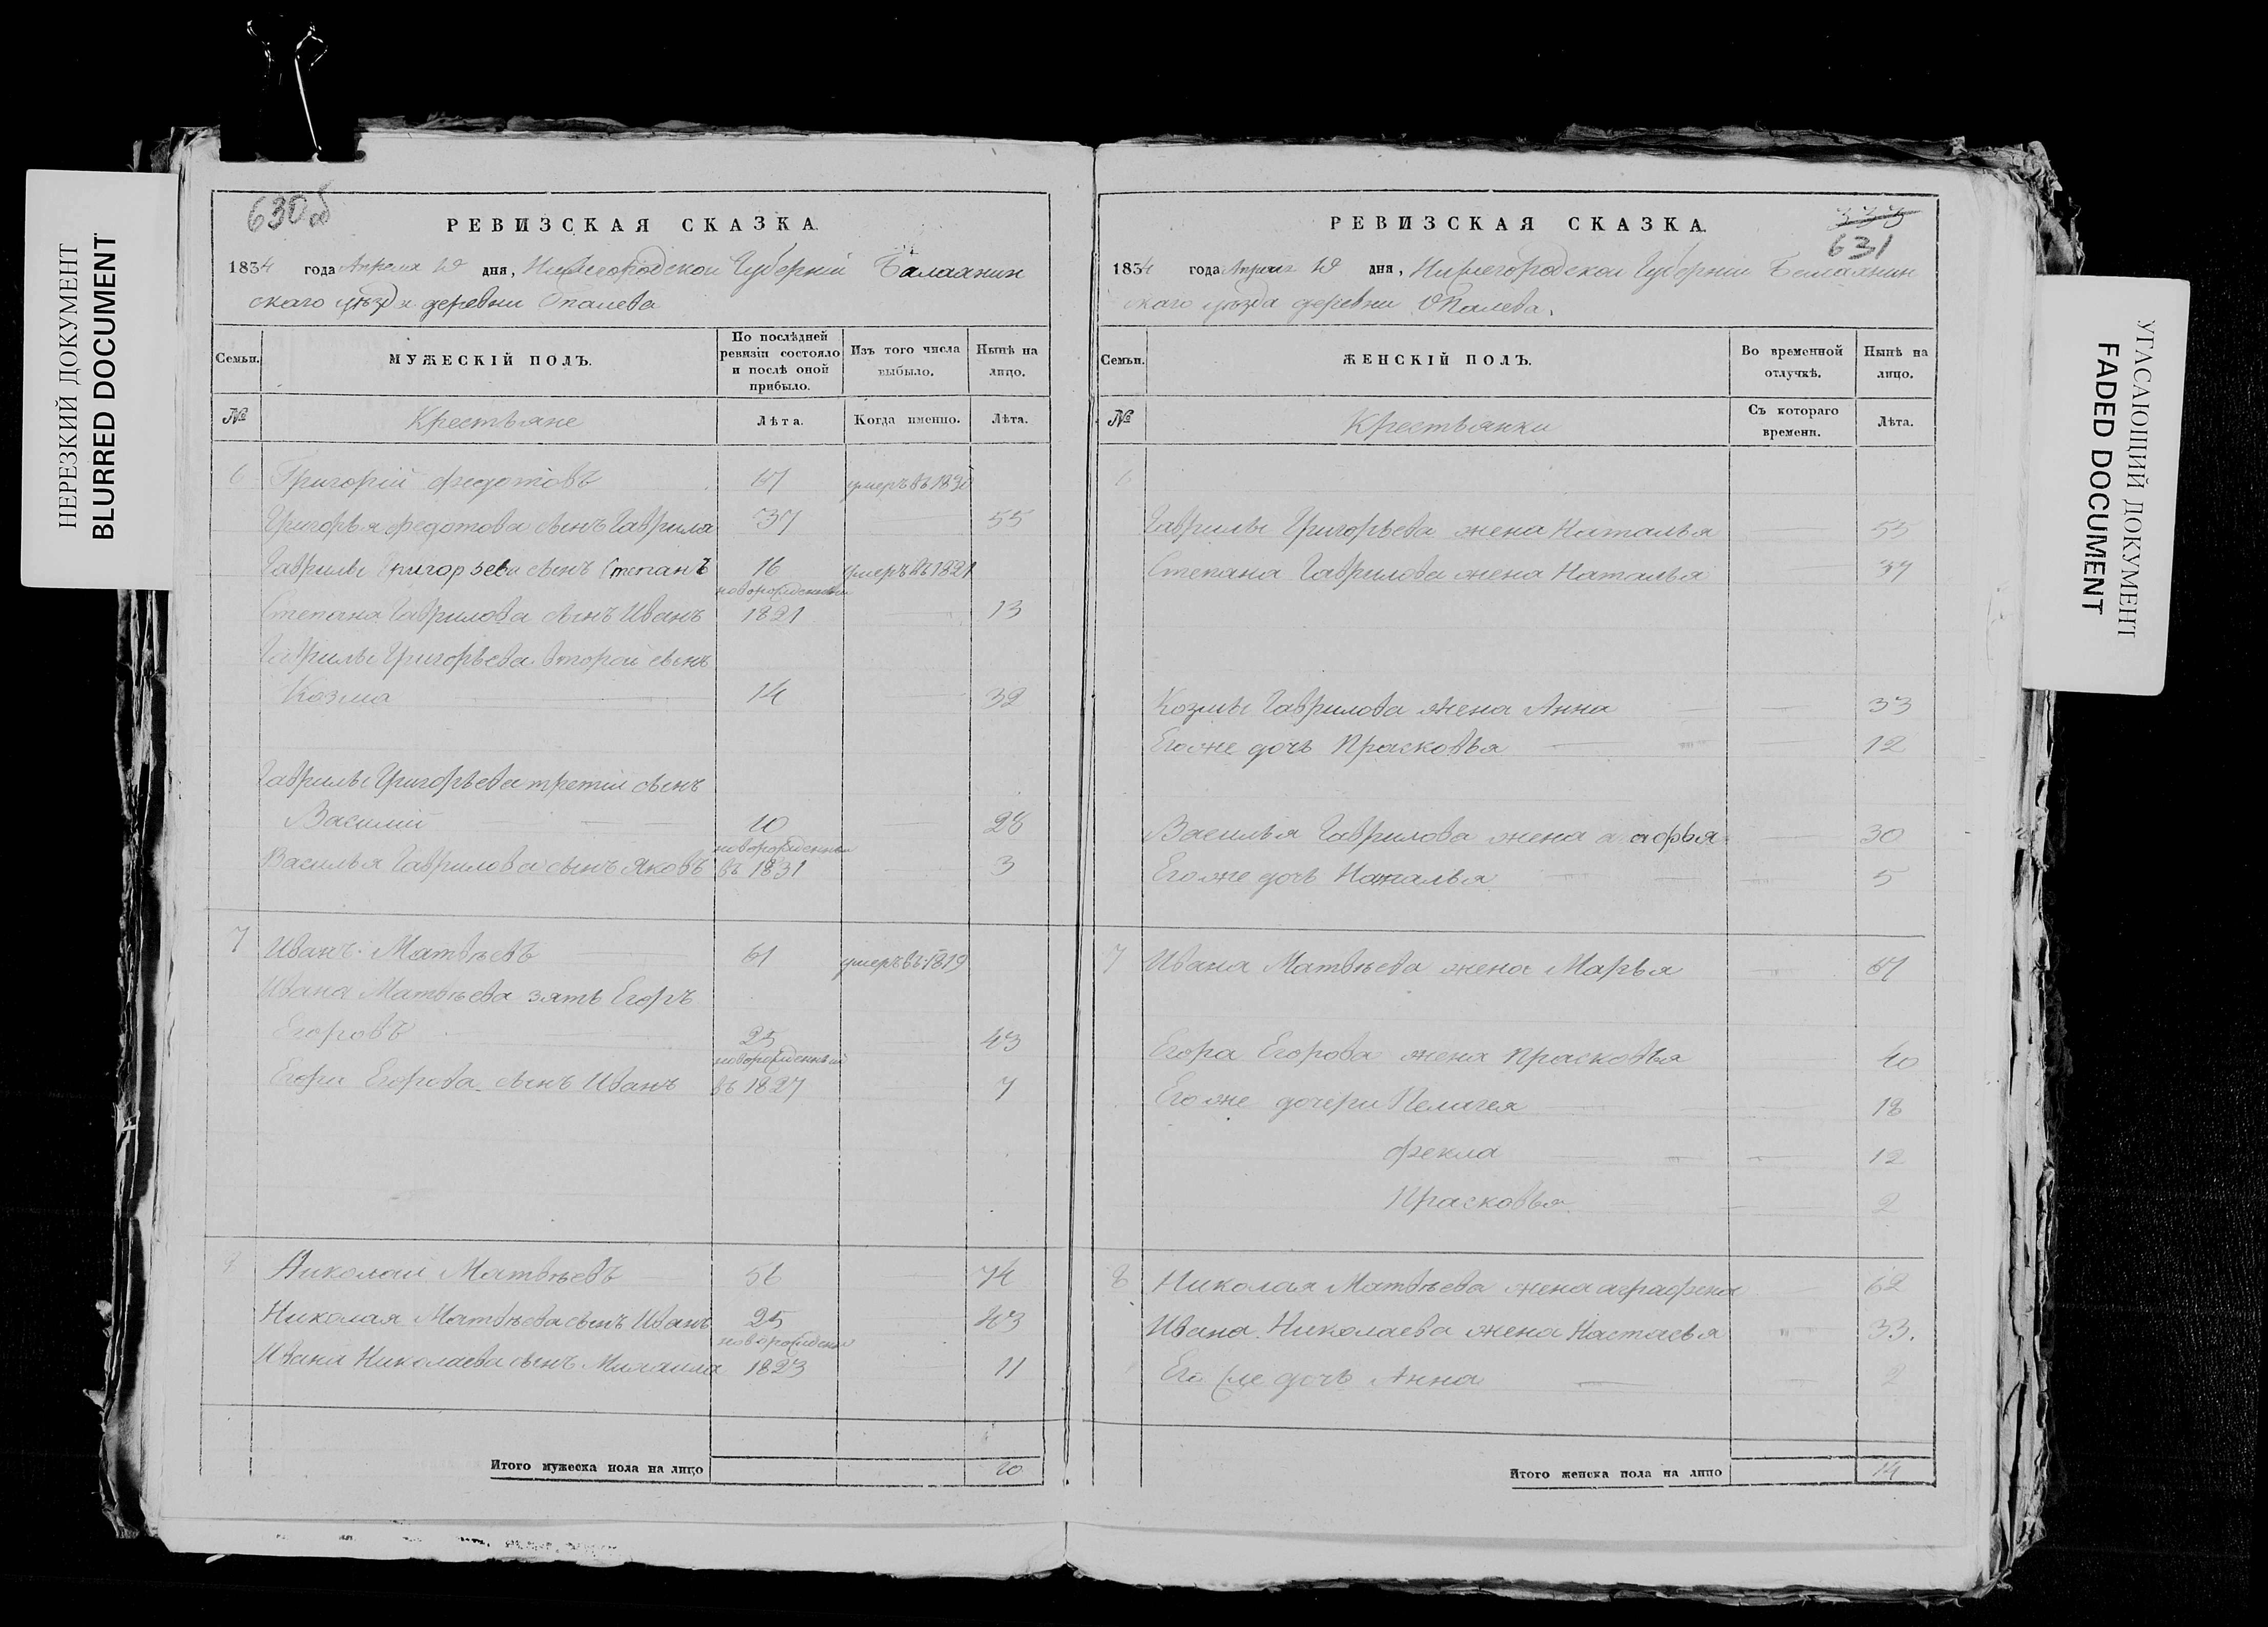 НЕРЕЗКИЙ ДОКУМЕНТ
BLURRED DOCUMENT
630об
РЕВИЗСКАЯ СКАЗКА.
1834 года Апреля 10 дня, Нижегородской Губернии Балахнин
скаго уѣзда деревни Опалева
Семьи.
МУЖЕСКІЙ ПОЛЪ.
По послѣдней ревизіи состояло и послѣ оной прибыло.
Изъ того числа выбыло.
Нынѣ на лицо.
№
Крестьяне
Лѣта.
Когда именно.
Лѣта.
6 Григорій Федотовъ 67 умеръ въ 1830
Григорья Федотова сынъ Гаврила 37 55
Гаврилы Григорьева сынъ Степанъ 16 умеръ въ 1821
новорожденный
Степана Гаврилова сынъ Иванъ 1821 13
Гаврилы Григорьева второй сынъ
Козма 14 32
Гаврилы Григорьева третій сынъ
Василий 10 28
новорожденный
Василья Гаврилова сынъ Яковъ въ 1831 3
7 Иванъ Матвѣевъ 61 умеръ въ 1819
Ивана Матвѣева зять Егоръ
Егоровъ 25 43
новорожденный
Егора Егорова сынъ Иванъ въ 1827 7
8 Николай Матвѣевъ 56 74
Николая Матвѣева сынъ Иванъ 25 43
новорожденный
Ивана Николаева сынъ Михаила 1823 11
Итого мужеска пола на лицо 10
РЕВИЗСКАЯ СКАЗКА.
631
1834 года Апреля 10 дня, Нижегородской Губерніи Балахнин
скаго уѣзда деревни Опалева.
Семьи.
ЖЕНСКІЙ ПОЛЪ.
Во временной отлучкѣ.
Нынѣ на лицо.
№
Крестьянки
Съ котораго времени.
Лѣта.
6
Гаврилы Григорьева жена Наталья 55
Степана Гаврилова жена Наталья 37
Козмы Гаврилова жена Анна 33
Его же дочь Прасковья 12
Василья Гаврилова жена агафья 30
Его же дочь Наталья 5
7 Ивана Матвѣева жена Марья 67
Егора Егорова жена Прасковья 40
Его же дочери Пелагея 18
Фекла 12
Прасковья 2
8 Николая Матвѣева жена аграфена 62
Ивана Николаева жена Настасья 33.
Его же дочь Анна 2
Итого женска пола на лицо 14
УГАСАЮЩИЙ ДОКУМЕНТ
FADED DOCUMENT